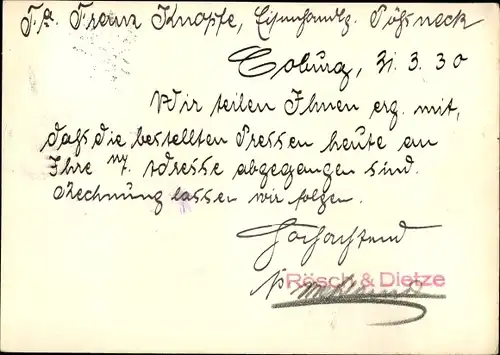 Fa. Franz Knopfe, Eisenhandlg. Pößneck
Coburg, 31. 3. 30
Wir teilen Ihnen erg. mit,
daß die bestellten Pressen heute an
Ihre w. Adresse abgegangen sind.
Rechnung lassen wir folgen.
Hochachtend
Rösch & Dietze